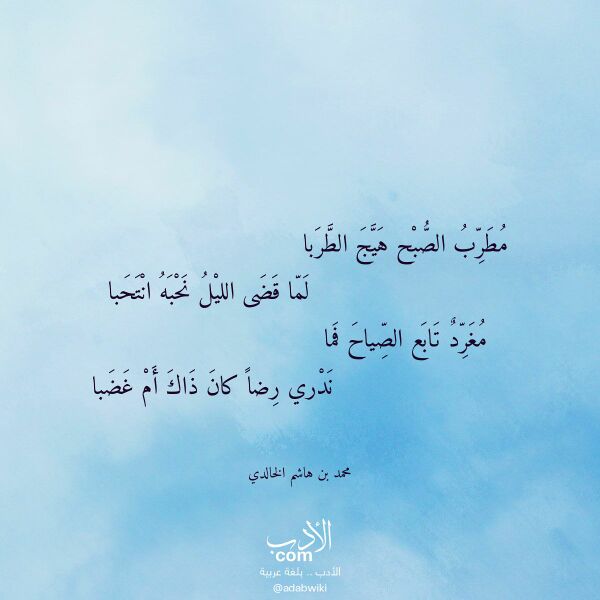 مُطَرِّبُ الصُّبْح هَيَّجَ الطَّرَبا
لَمّا قَضَى الليْلُ نَحْبَهُ انْتَحَبا
مُغَرِّدٌ تَابَع الصِّياحَ فَما
نَدْري رِضاً كانَ ذَاكَ أَمْ غَضَبا
محمد بن هاشم الخالدي
الأدب
com
الأدب .. بلغة عربية
@adabwiki